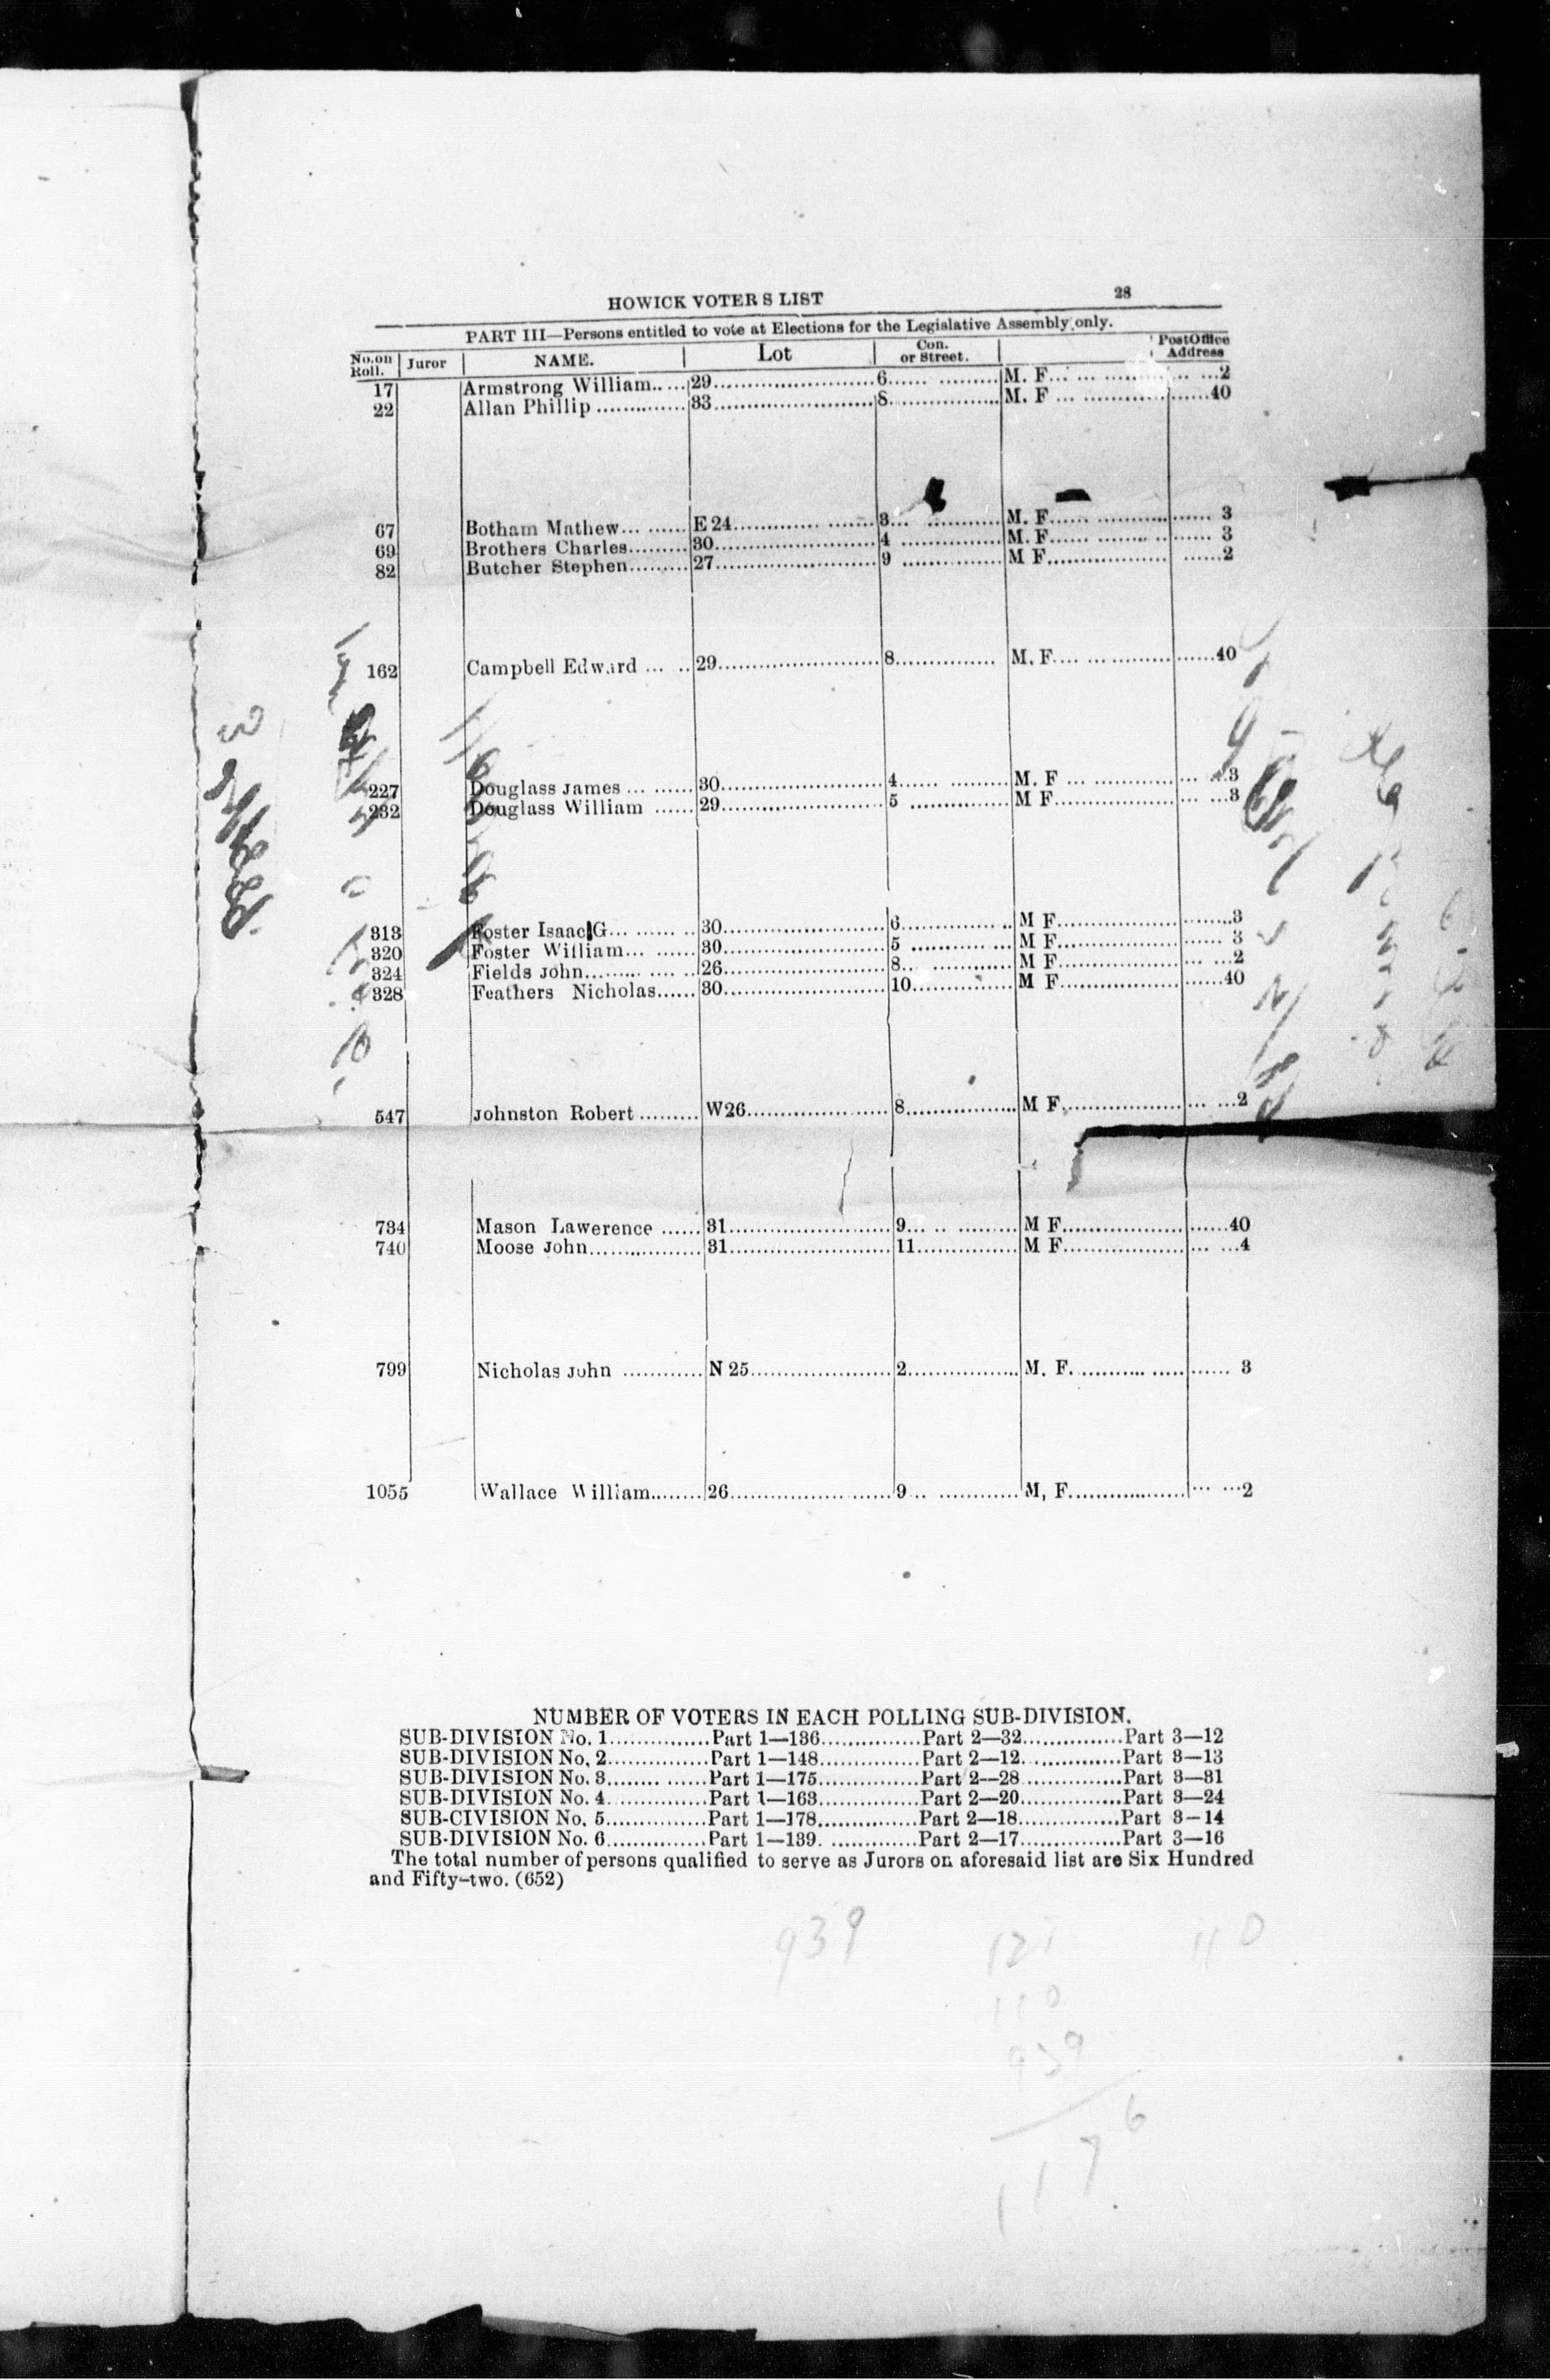 HOWICK VOTERS LIST 28
PART III—Persons entitled to vote at Elections for the Legislative Assembly only.
No. on Roll. Juror NAME. Lot Con. or Street. PostOffice Address
17 Armstrong William.. ...29........................6...... .........M. F... ... ............ ... ...2
22 Allan Phillip ..............33........................8.................M. F ... ...................40
67 Botham Mathew... ......E 24............. .......3... ............M. F...... .................. 3
69 Brothers Charles.........30........................4 ...............M. F...... ........ .. ...... 3
82 Butcher Stephen.........27........................9 ...............M F................... ......2
162 Campbell Edward ... ..29........................8............... M. F.... ... .................40
227 Douglass James ... ......30........................4...... .........M. F ... ............. ... ...3
232 Douglass William ......29........................5 ...............M F................... ... ...3
313 Foster Isaac G... ...... ..30........................6.................M F..........................3
320 Foster William... ......30........................5 ...............M F......................... 3
324 Fields John......... .... ..26........................8... ............M F................... ... ...2
328 Feathers Nicholas......30........................10...............M F.........................40
547 Johnston Robert .........W26.....................8.................M F................... ... ...2
734 Mason Lawerence ......31........................9... .. .........M F.........................40
740 Moose John.................31........................11...............M F................... ... ...4
799 Nicholas John ............N 25.....................2.................M. F............ ..... ...... 3
1055 Wallace William........26........................9... ............M, F.................... ... ...2
NUMBER OF VOTERS IN EACH POLLING SUB-DIVISION.
SUB-DIVISION No. 1...............Part 1—136...............Part 2—32...............Part 3—12
SUB-DIVISION No. 2...............Part 1—148...............Part 2—12...............Part 3—13
SUB-DIVISION No. 3........ ......Part 1—175...............Part 2—28...............Part 3—31
SUB-DIVISION No. 4...............Part 1—163...............Part 2—20...............Part 3—24
SUB-CIVISION No. 5...............Part 1—178...............Part 2—18...............Part 3—14
SUB-DIVISION No. 6...............Part 1—139. .............Part 2—17...............Part 3—16
The total number of persons qualified to serve as Jurors on aforesaid list are Six Hundred
and Fifty-two. (652)
939 121 110
110
939
1176